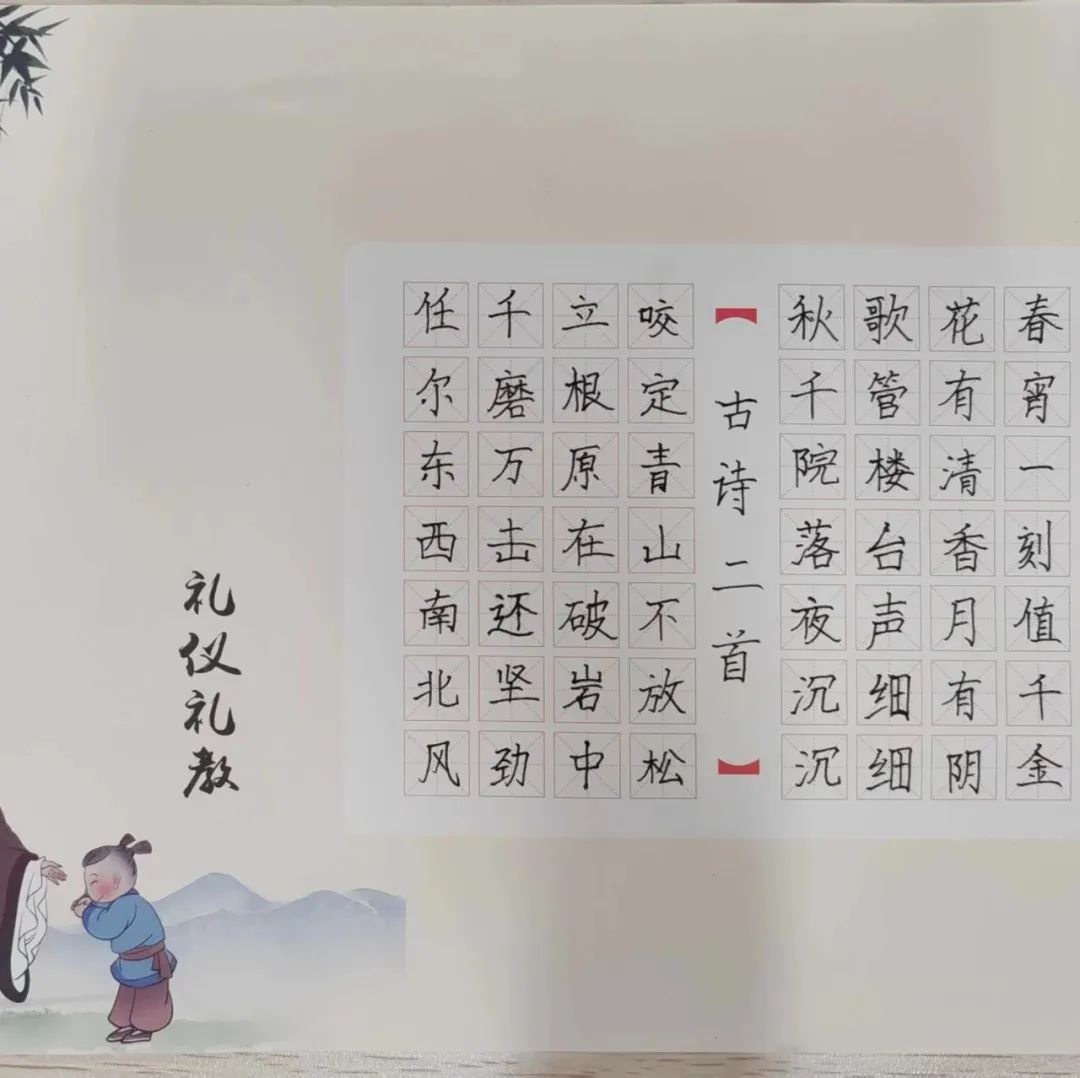 春宵一刻值千金
花有清香月有阴
歌管楼台声细细
秋千院落夜沉沉
【古诗二首】
咬定青山不放松
立根原在破岩中
千磨万击还坚劲
任尔东西南北风
礼仪礼教